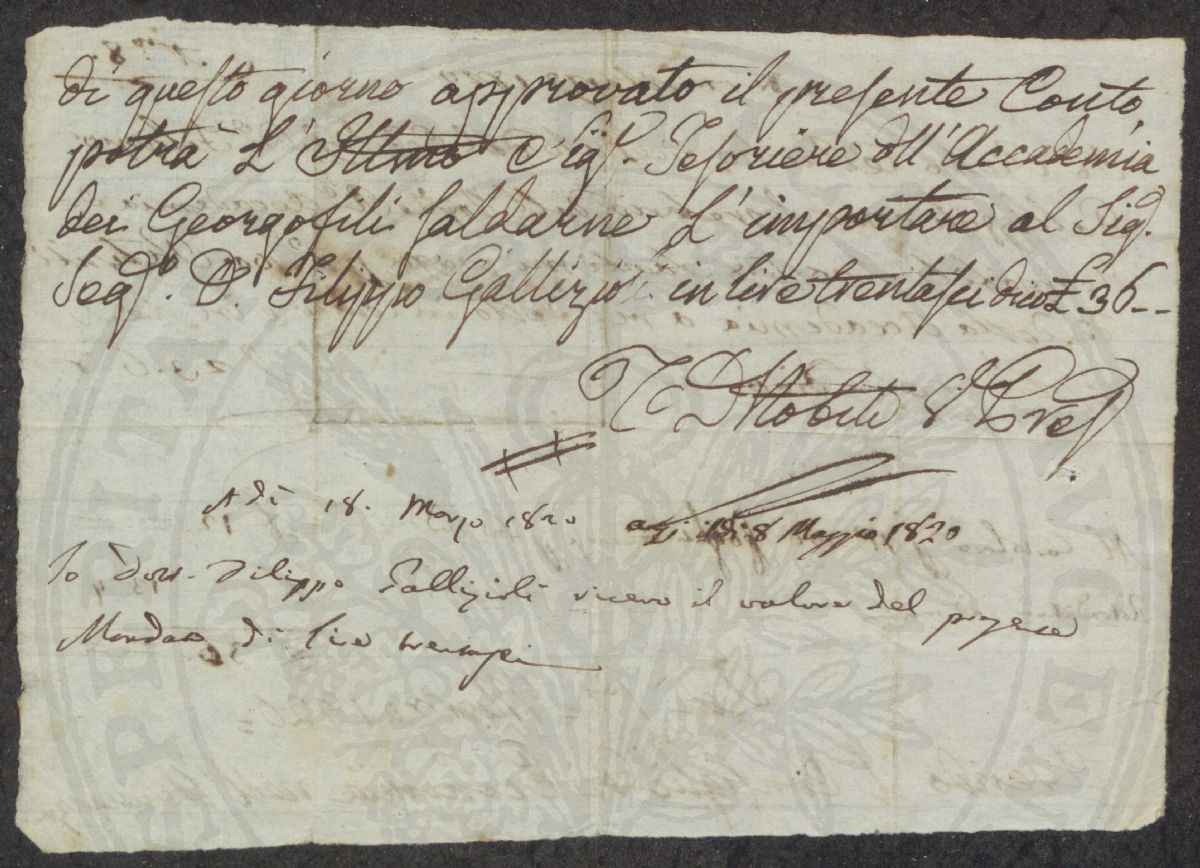 di questo giorno approvato il presente Conto,
potrà L'Ill.mo Sig.r Tesoriere dell'Accademia
dei Georgofili saldarne L'importare al Sig.r
Seg.o D. Filippo Gallizioli in lire trentasei dico £ 36 --
Nobili Pres
A dì 18. Marzo 1820
dì 8 Maggio 1820
Io Dott. Filippo Gallizioli ricevo il valore del presente
Mandato di Lire trentasei